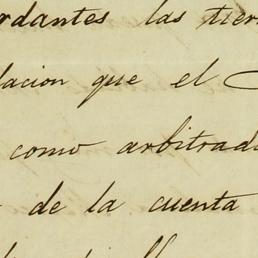 rdantes las tierr
lacion que el
como arbitrad
de la cuenta